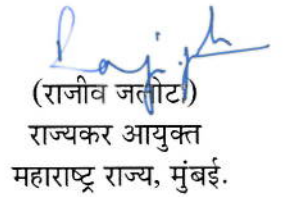 (राजीव जलोटा)
राज्यकर आयुक्त
महाराष्ट्र राज्य, मुंबई.